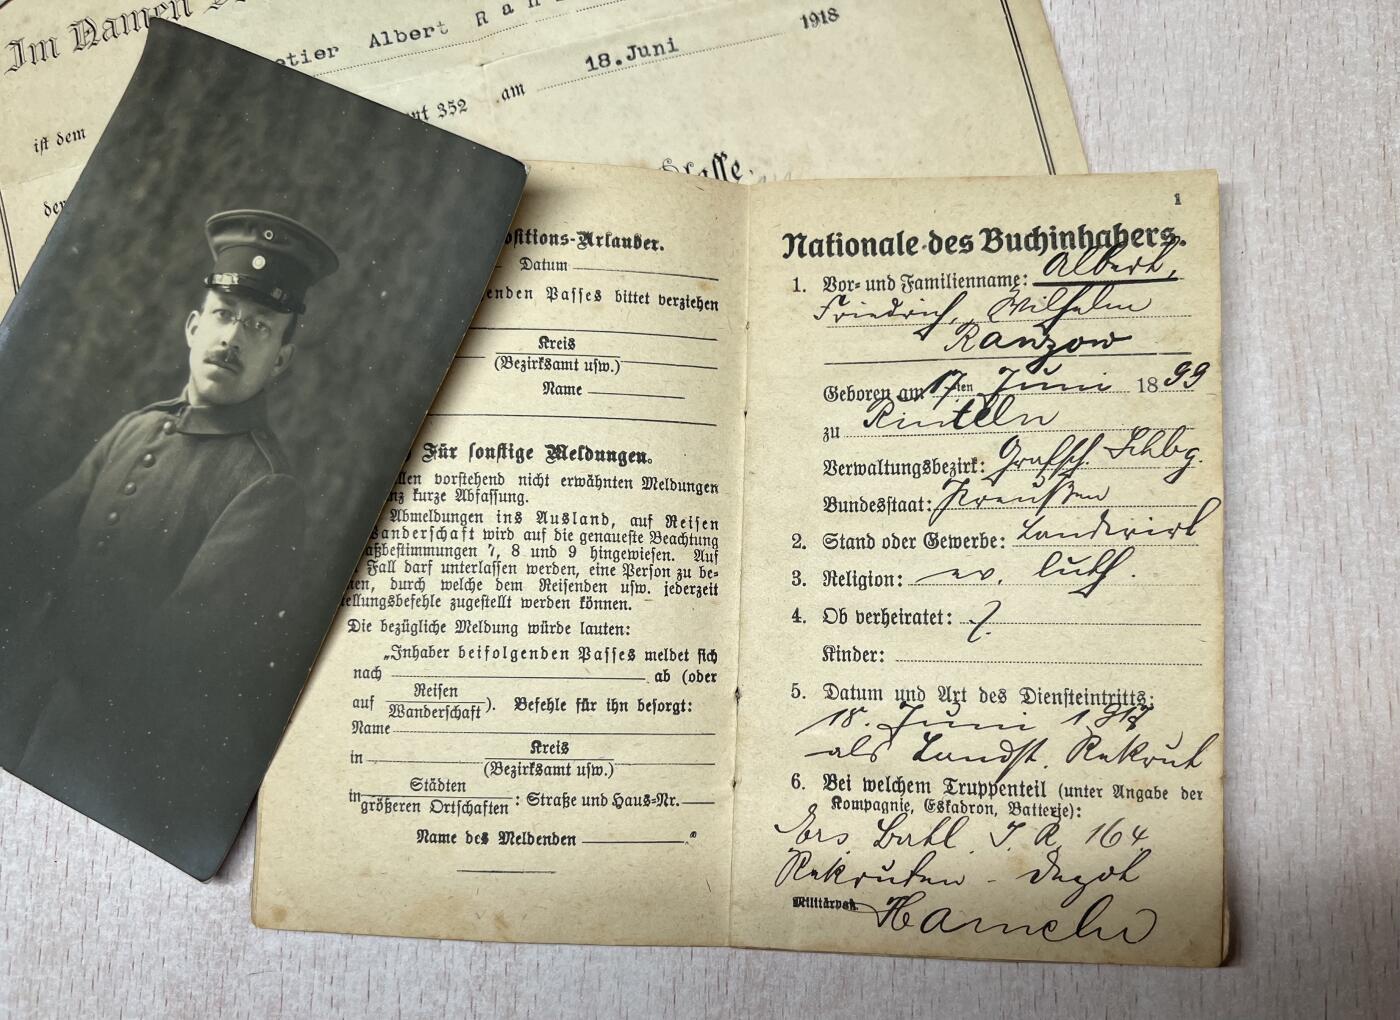 Im Namen
etier Albert Ran
1918
nt 352 am 18. Juni
ist dem
der
Klasse.
ositions-Urlauber.
Datum
enden Passes bittet verziehen
Kreis
(Bezirksamt usw.)
Name
Für sonstige Meldungen.
llen vorstehend nicht erwähnten Meldungen
nz kurze Abfassung.
Abmeldungen ins Ausland, auf Reisen
Wanderschaft wird auf die genaueste Beachtung
aßbestimmungen 7, 8 und 9 hingewiesen. Auf
Fall darf unterlassen werden, eine Person zu be-
nen, durch welche dem Reisenden usw. jederzeit
ellungsbefehle zugestellt werden können.
Die bezügliche Meldung würde lauten:
„Inhaber beifolgenden Passes meldet sich
nach ab (oder
auf Reisen
Wanderschaft). Befehle für ihn besorgt:
Name
in Kreis
(Bezirksamt usw.)
in Städten
größeren Ortschaften: Straße und Haus-Nr.
Name des Meldenden “
1
Nationale des Buchinhabers.
1. Vor- und Familienname: Albert,
Friedrich, Wilhelm
Ranzow
Geboren am 17ten Juni 1899
zu Rinteln
Verwaltungsbezirk: Grafsch. Schbg.
Bundesstaat: Preußen
2. Stand oder Gewerbe: Landwirt
3. Religion: ev. luth.
4. Ob verheiratet: /.
Kinder:
5. Datum und Art des Diensteintritts:
18. Juni 1917
als Landst. Rekrut
6. Bei welchem Truppenteil (unter Angabe der
Kompagnie, Eskadron, Batterie):
Ers. Batl. I. R. 164
Rekruten-Depot
Militärpaß. Hameln